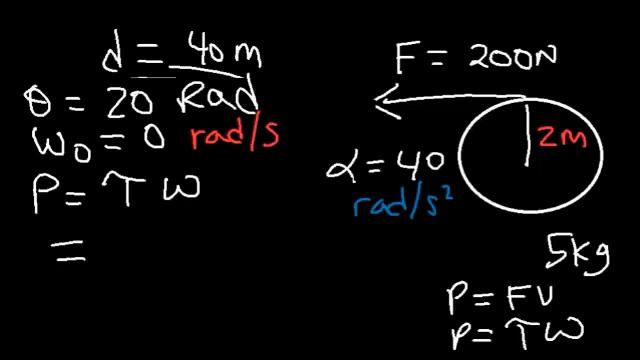 d = 40m
θ = 20 Rad
W₀ = 0 rad/s
P = τ W
=
F = 200N
2m
α = 40
rad/s²
5kg
P = FV
P = τ W